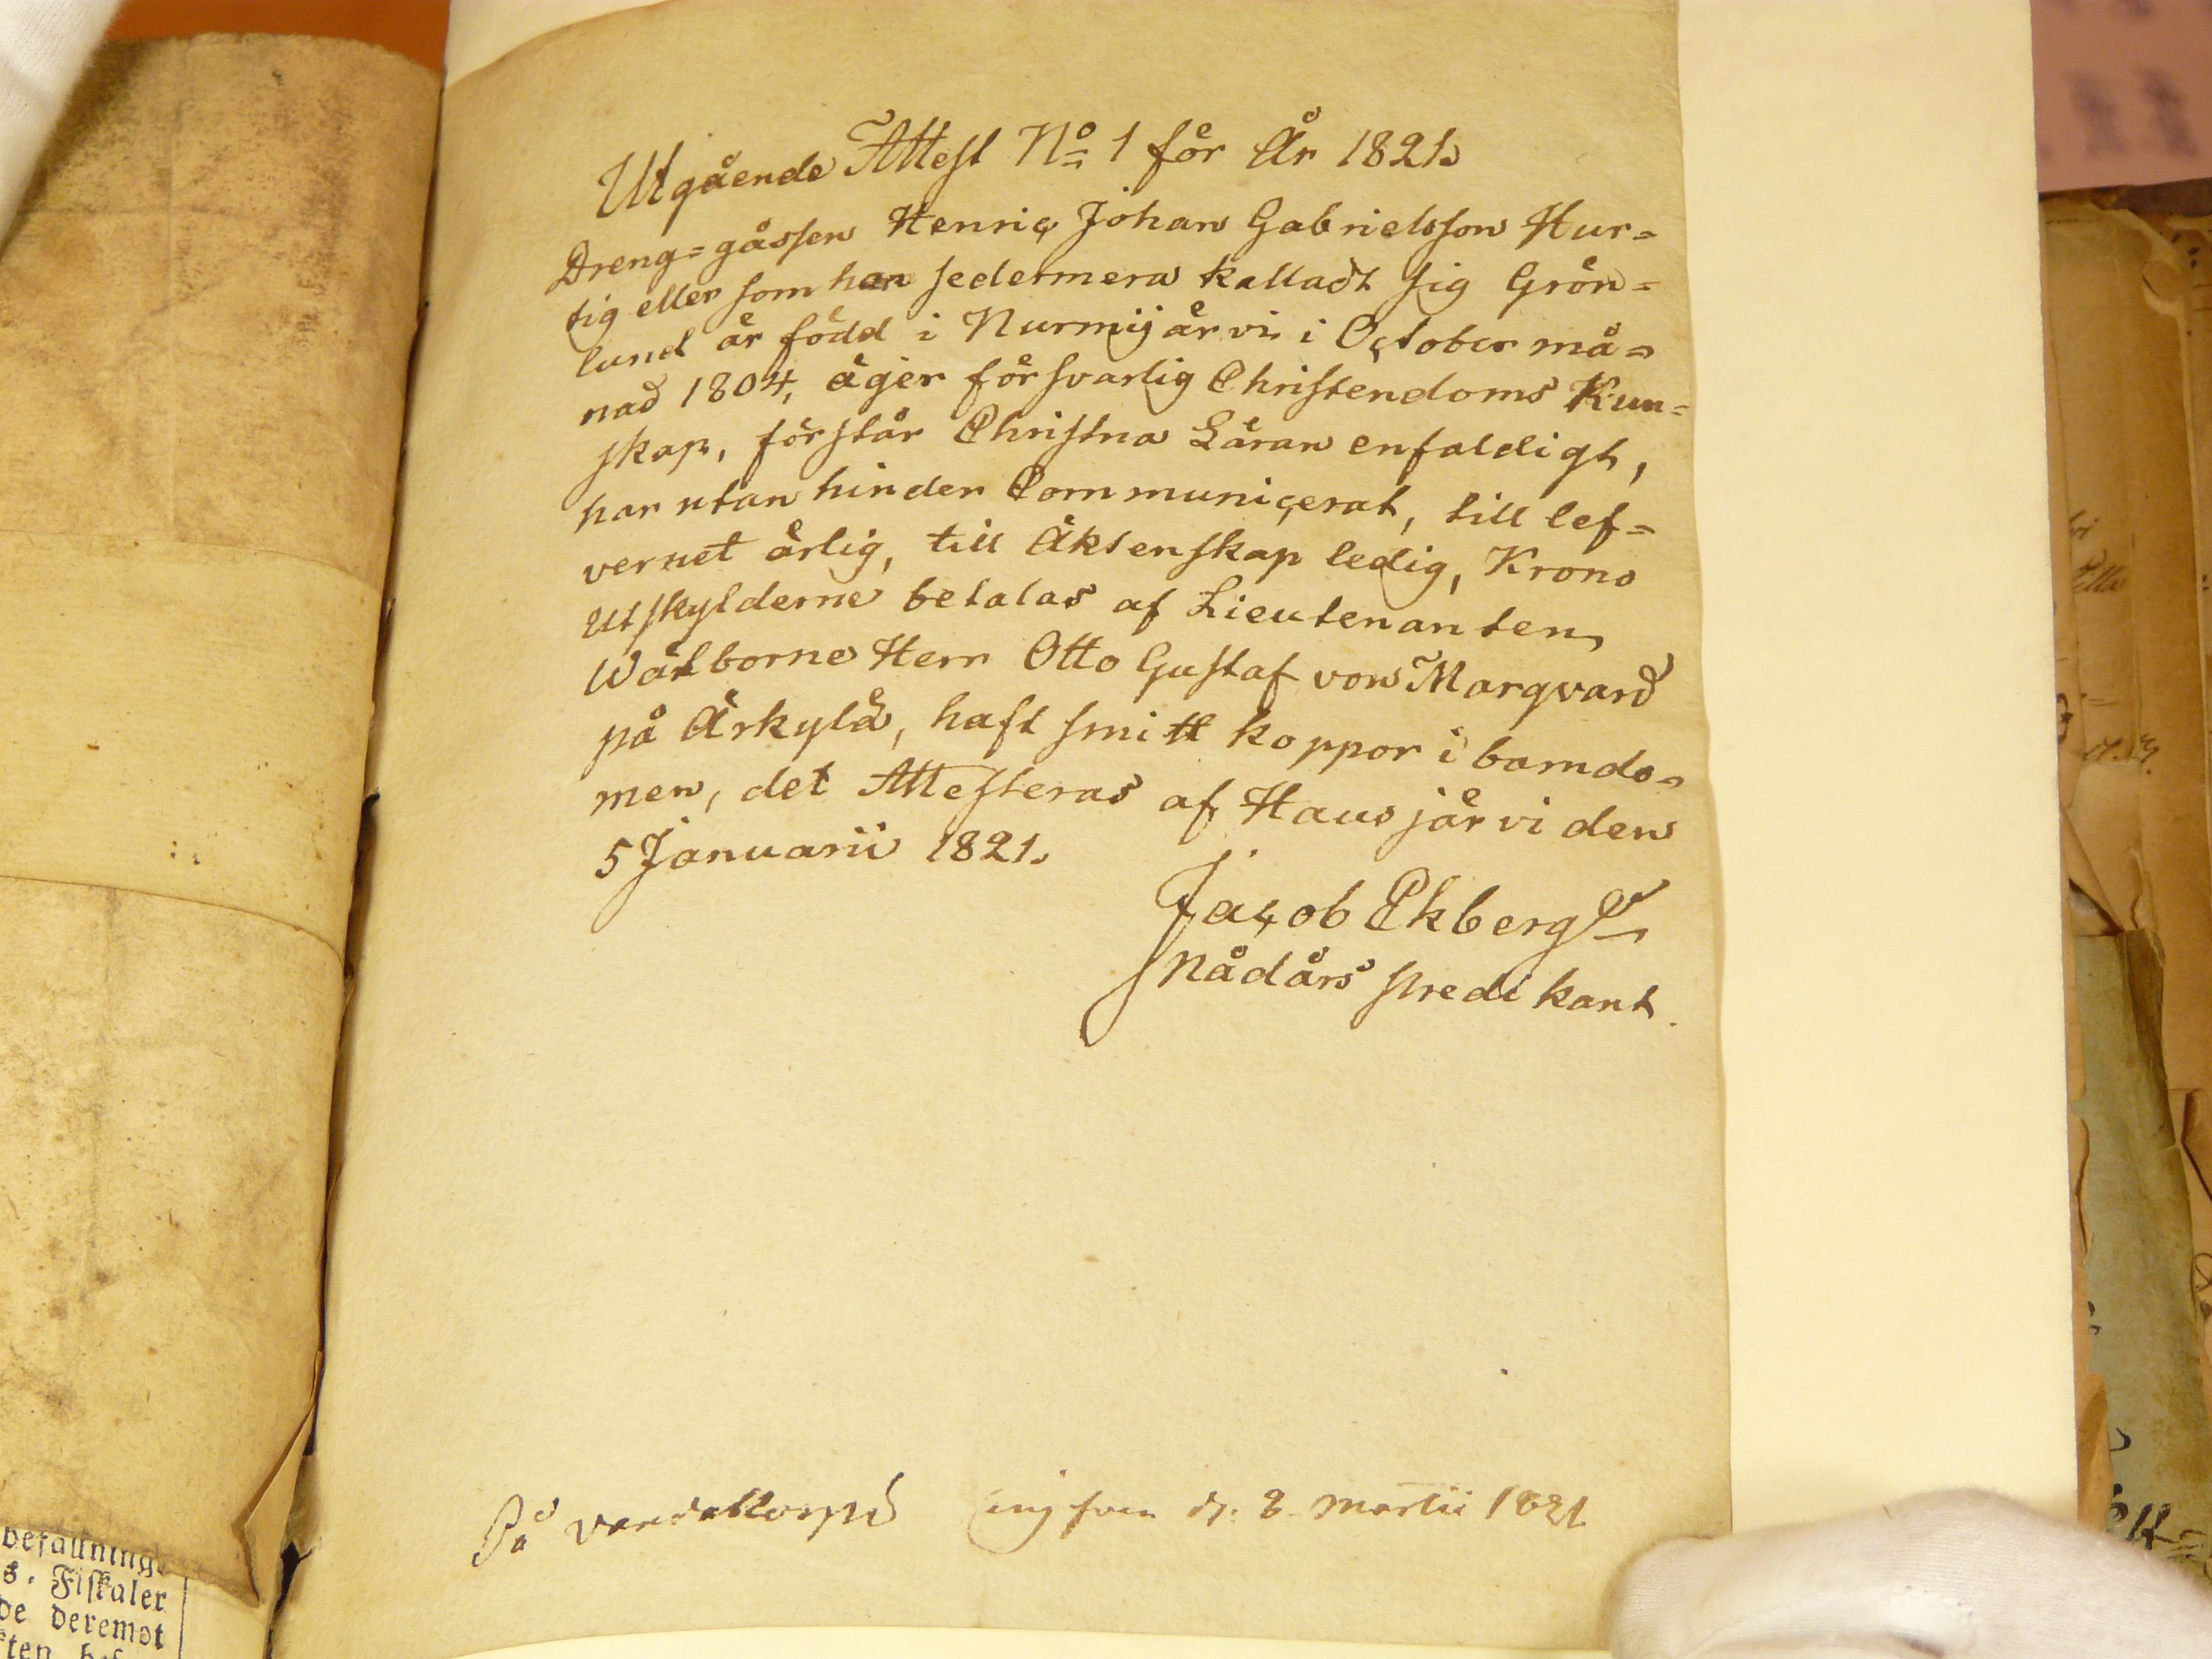 Utgående Attest No 1 för År 1821.
Dreng=gåssen Henric Johan Gabrielsson Hur=
tig eller som han sedermera kalladt sig Grön=
lund är född i Nurmijärvi i October må=
nad 1804, äger försvarlig Christendoms Kun=
skap, förstår Christna Läran enfaldigt,
har utan hinder Communicerat, till lef=
vernet ärlig, till Äktenskap ledig, Krono
utskylderne betalas af Lieutenanten
Wälborne Herr Otto Gustaf von Marqvard
på Ärkylä, haft smitt koppor i barndo=
men, det Attesteras af Hausjärvi den
5 Januarii 1821.
Jacob Ekberg
Nådårs predikant.
På
d. 2 Martii 1821
befallning
s. Fiskaler
de deremot